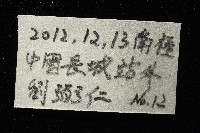 2012,12,13南極
中國長城站水
劉弼仁 No.12